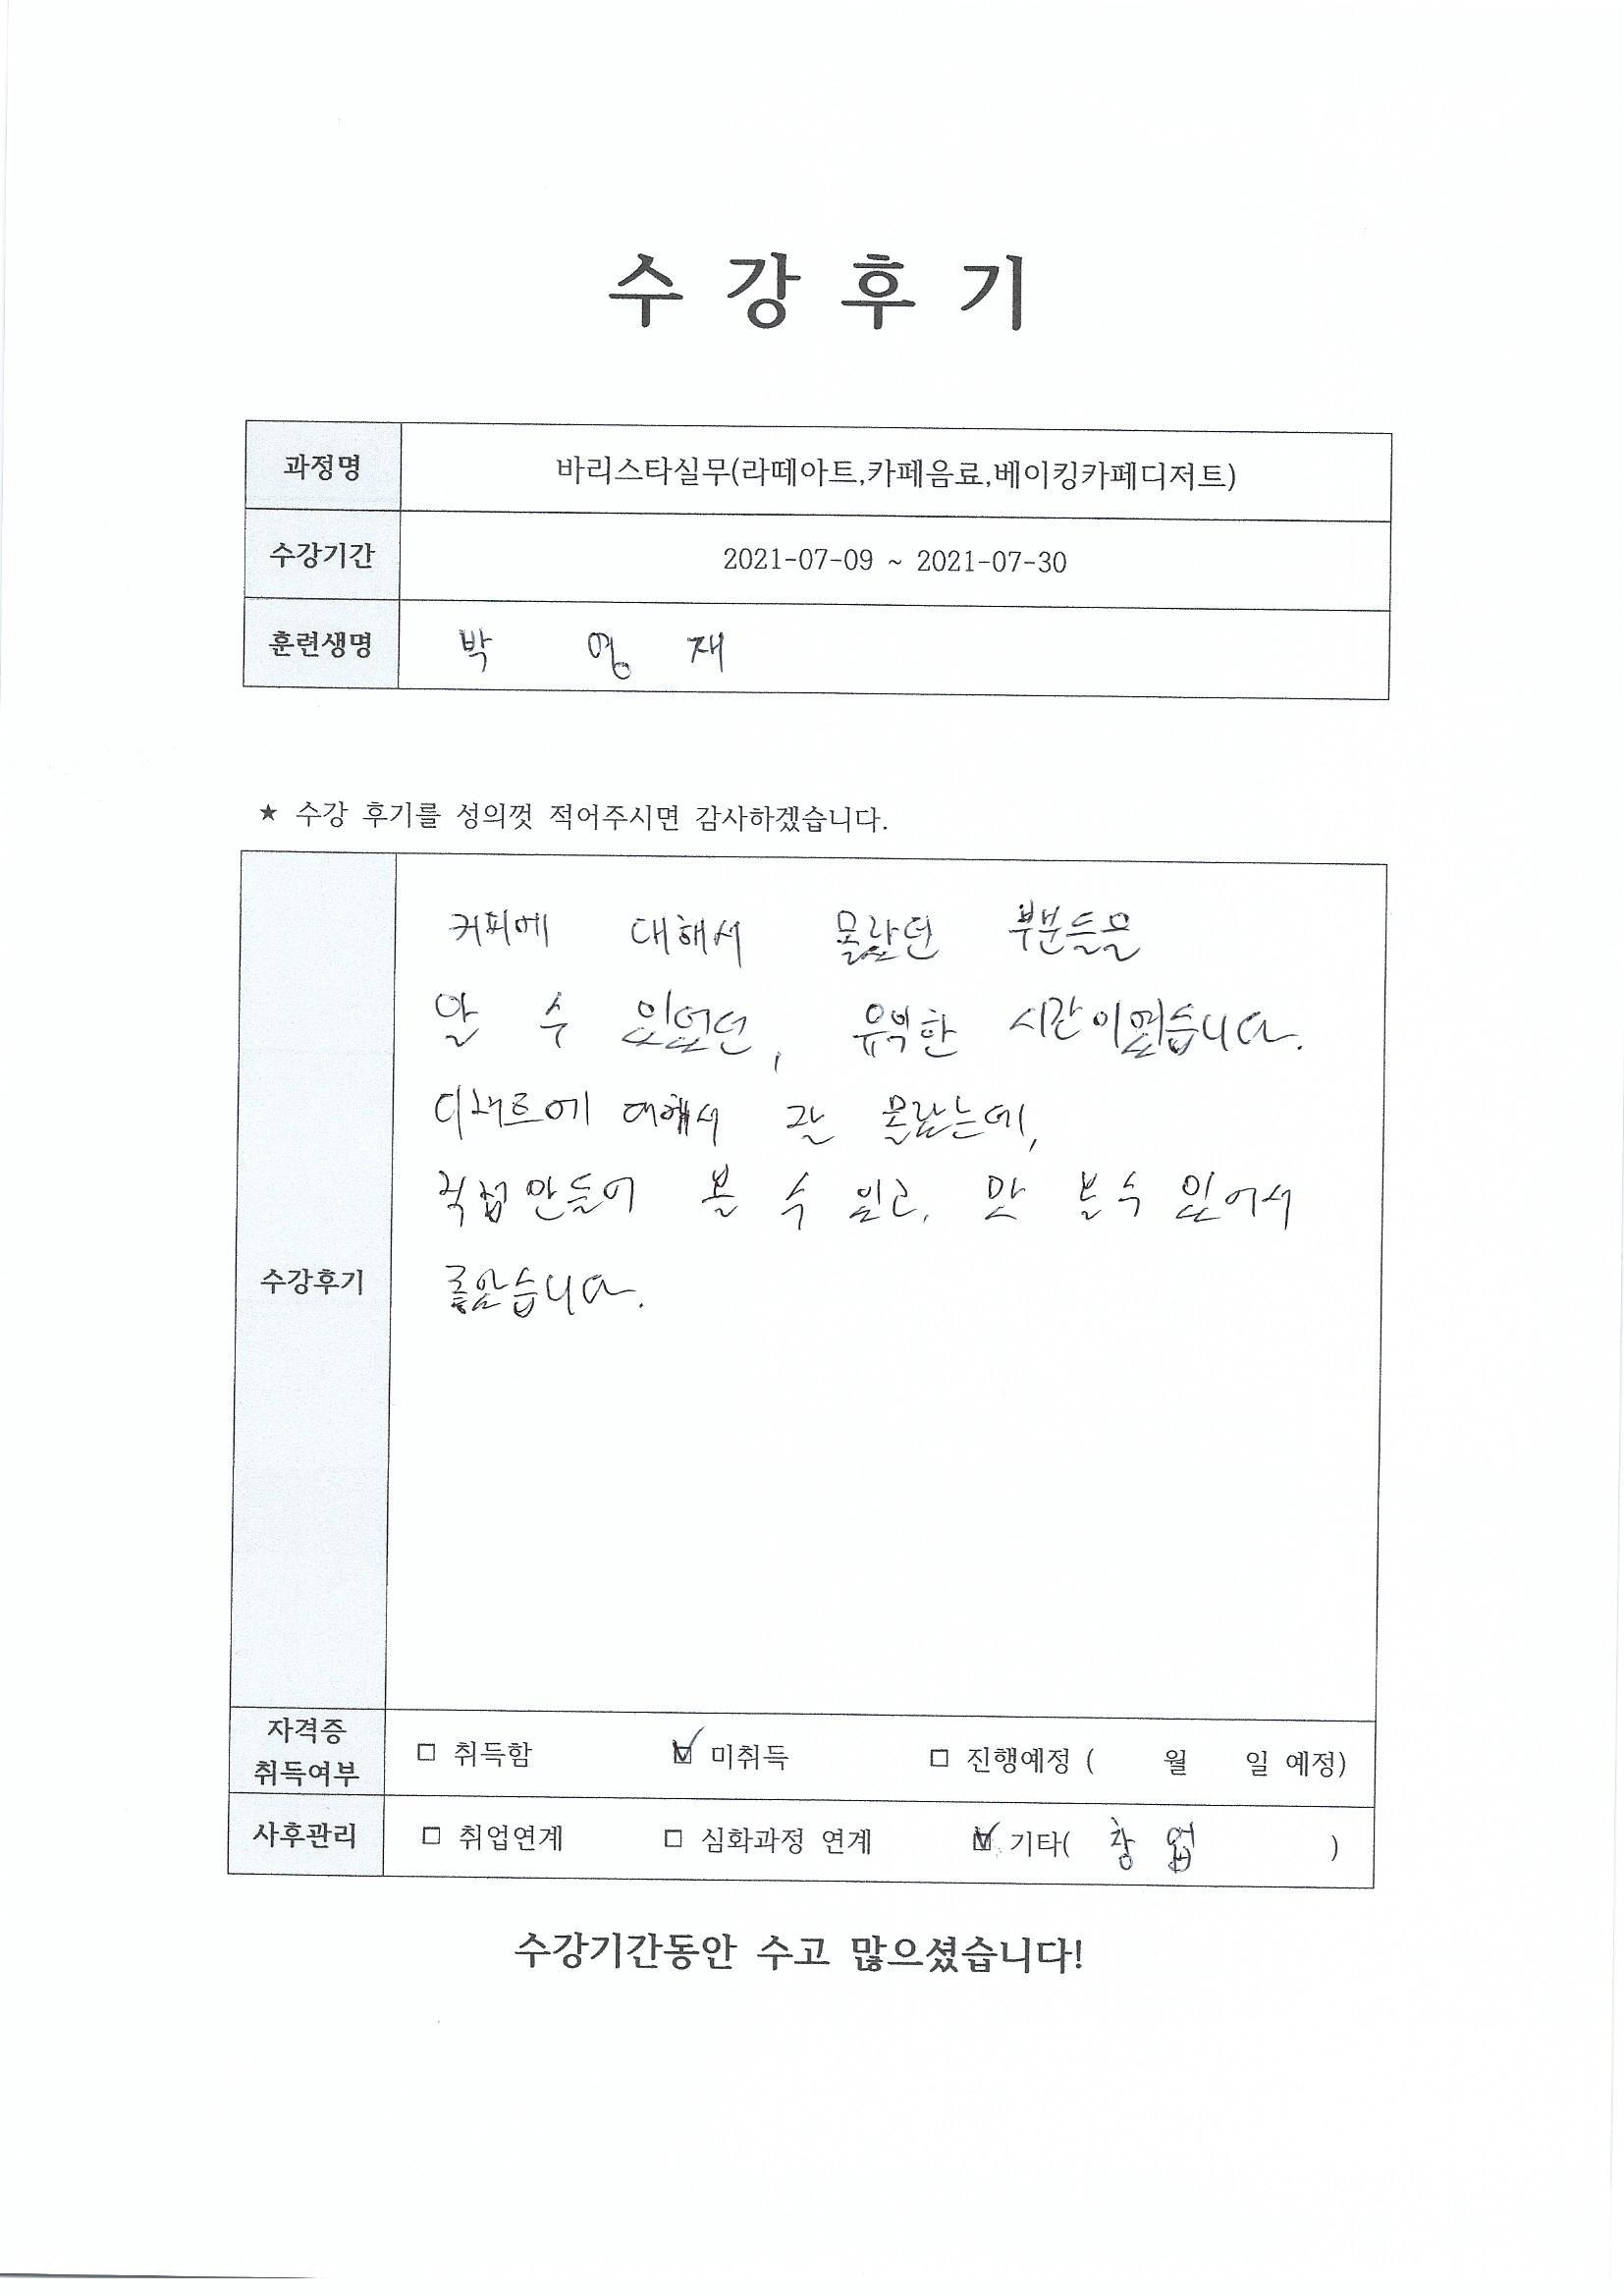 수 강 후 기
과정명 바리스타실무(라떼아트,카페음료,베이킹카페디저트)
수강기간 2021-07-09 ~ 2021-07-30
훈련생명 박 영 재
★ 수강 후기를 성의껏 적어주시면 감사하겠습니다.
수강후기
커피에 대해서 몰랐던 부분들을
알 수 있었던, 유익한 시간이었습니다.
디저트에 대해서 잘 몰랐는데,
직접 만들어 볼 수 있고, 맛 볼수 있어서
좋았습니다.
자격증
취득여부
☐ 취득함 ☑ 미취득 ☐ 진행예정 ( 월 일 예정)
사후관리 ☐ 취업연계 ☐ 심화과정 연계 ☑ 기타( 창 업 )
수강기간동안 수고 많으셨습니다!